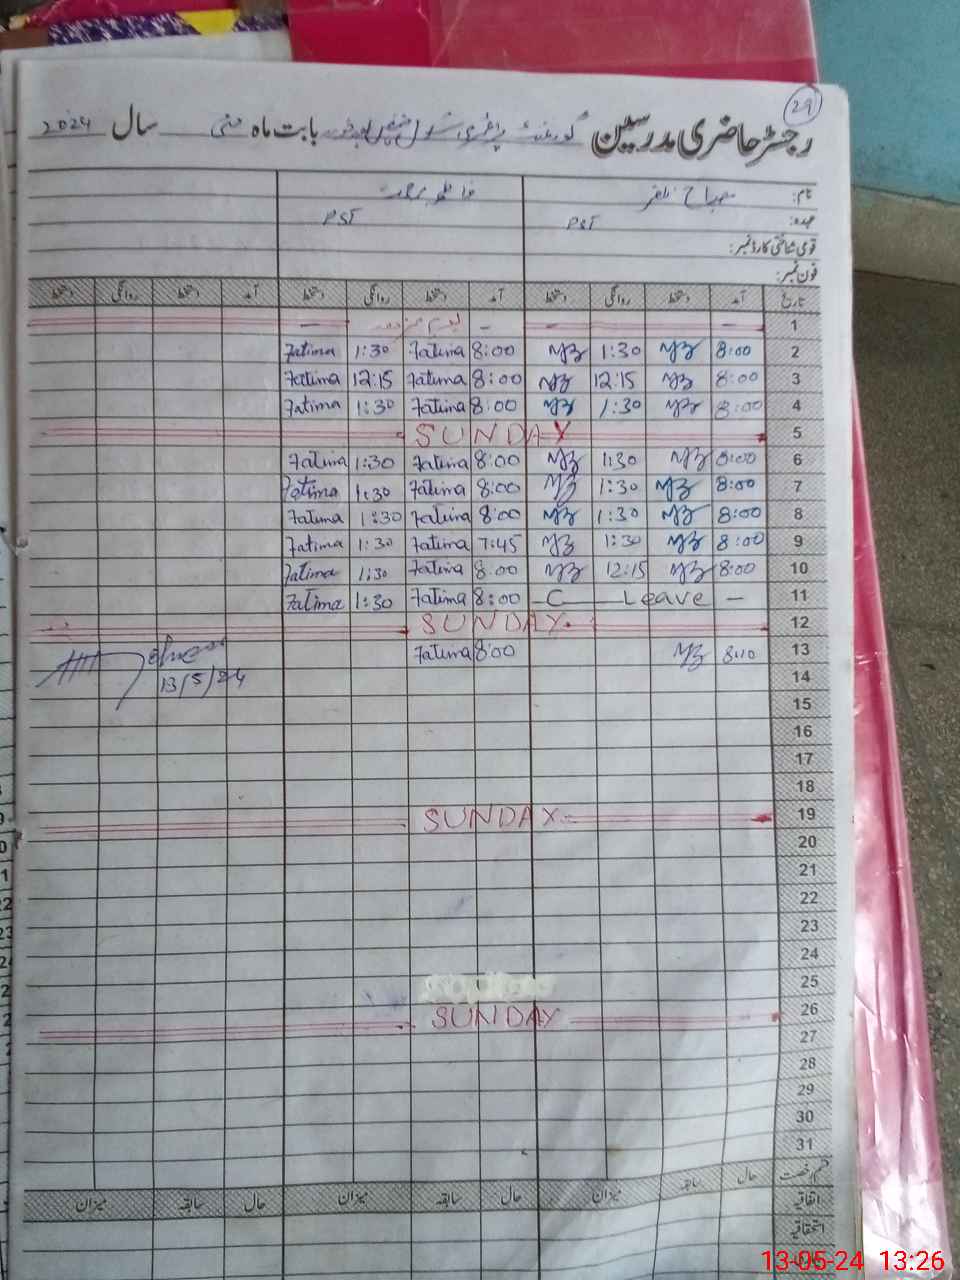 29
رجسٹر حاضری مدرسین گورنمنٹ پرائمری سکول بابت ماہ مئی سال 2024
نام: مصباح ظفر فاطمہ
عہدہ: PST PST
قومی شناختی کارڈ نمبر:
فون نمبر:
تاریخ آمد دستخط روانگی دستخط آمد دستخط روانگی دستخط آمد دستخط روانگی دستخط
1 - - - یوم مزدور -
2 8:00 1:30 8:00 Fatima 1:30 Fatima
3 8:00 12:15 8:00 Fatima 12:15 Fatima
4 8:00 1:30 8:00 Fatima 1:30 Fatima
5 SUNDAY
6 8:00 1:30 8:00 Fatima 1:30 Fatima
7 8:00 1:30 8:00 Fatima 1:30 Fatima
8 8:00 1:30 8:00 Fatima 1:30 Fatima
9 8:00 1:30 7:45 Fatima 1:30 Fatima
10 8:00 12:15 8:00 Fatima 1:30 Fatima
11 - C Leave - 8:00 Fatima 1:30 Fatima
12 SUNDAY
13 8:10 8:00 Fatima
14 13/5/24
15
16
17
18
19 SUNDAY
20
21
22
23
24
25
26 SUNDAY
27
28
29
30
31
قسم رخصت حال سابقہ میزان حال سابقہ میزان حال سابقہ میزان
اتفاقیہ
استحقاقیہ
13-05-24 13:26